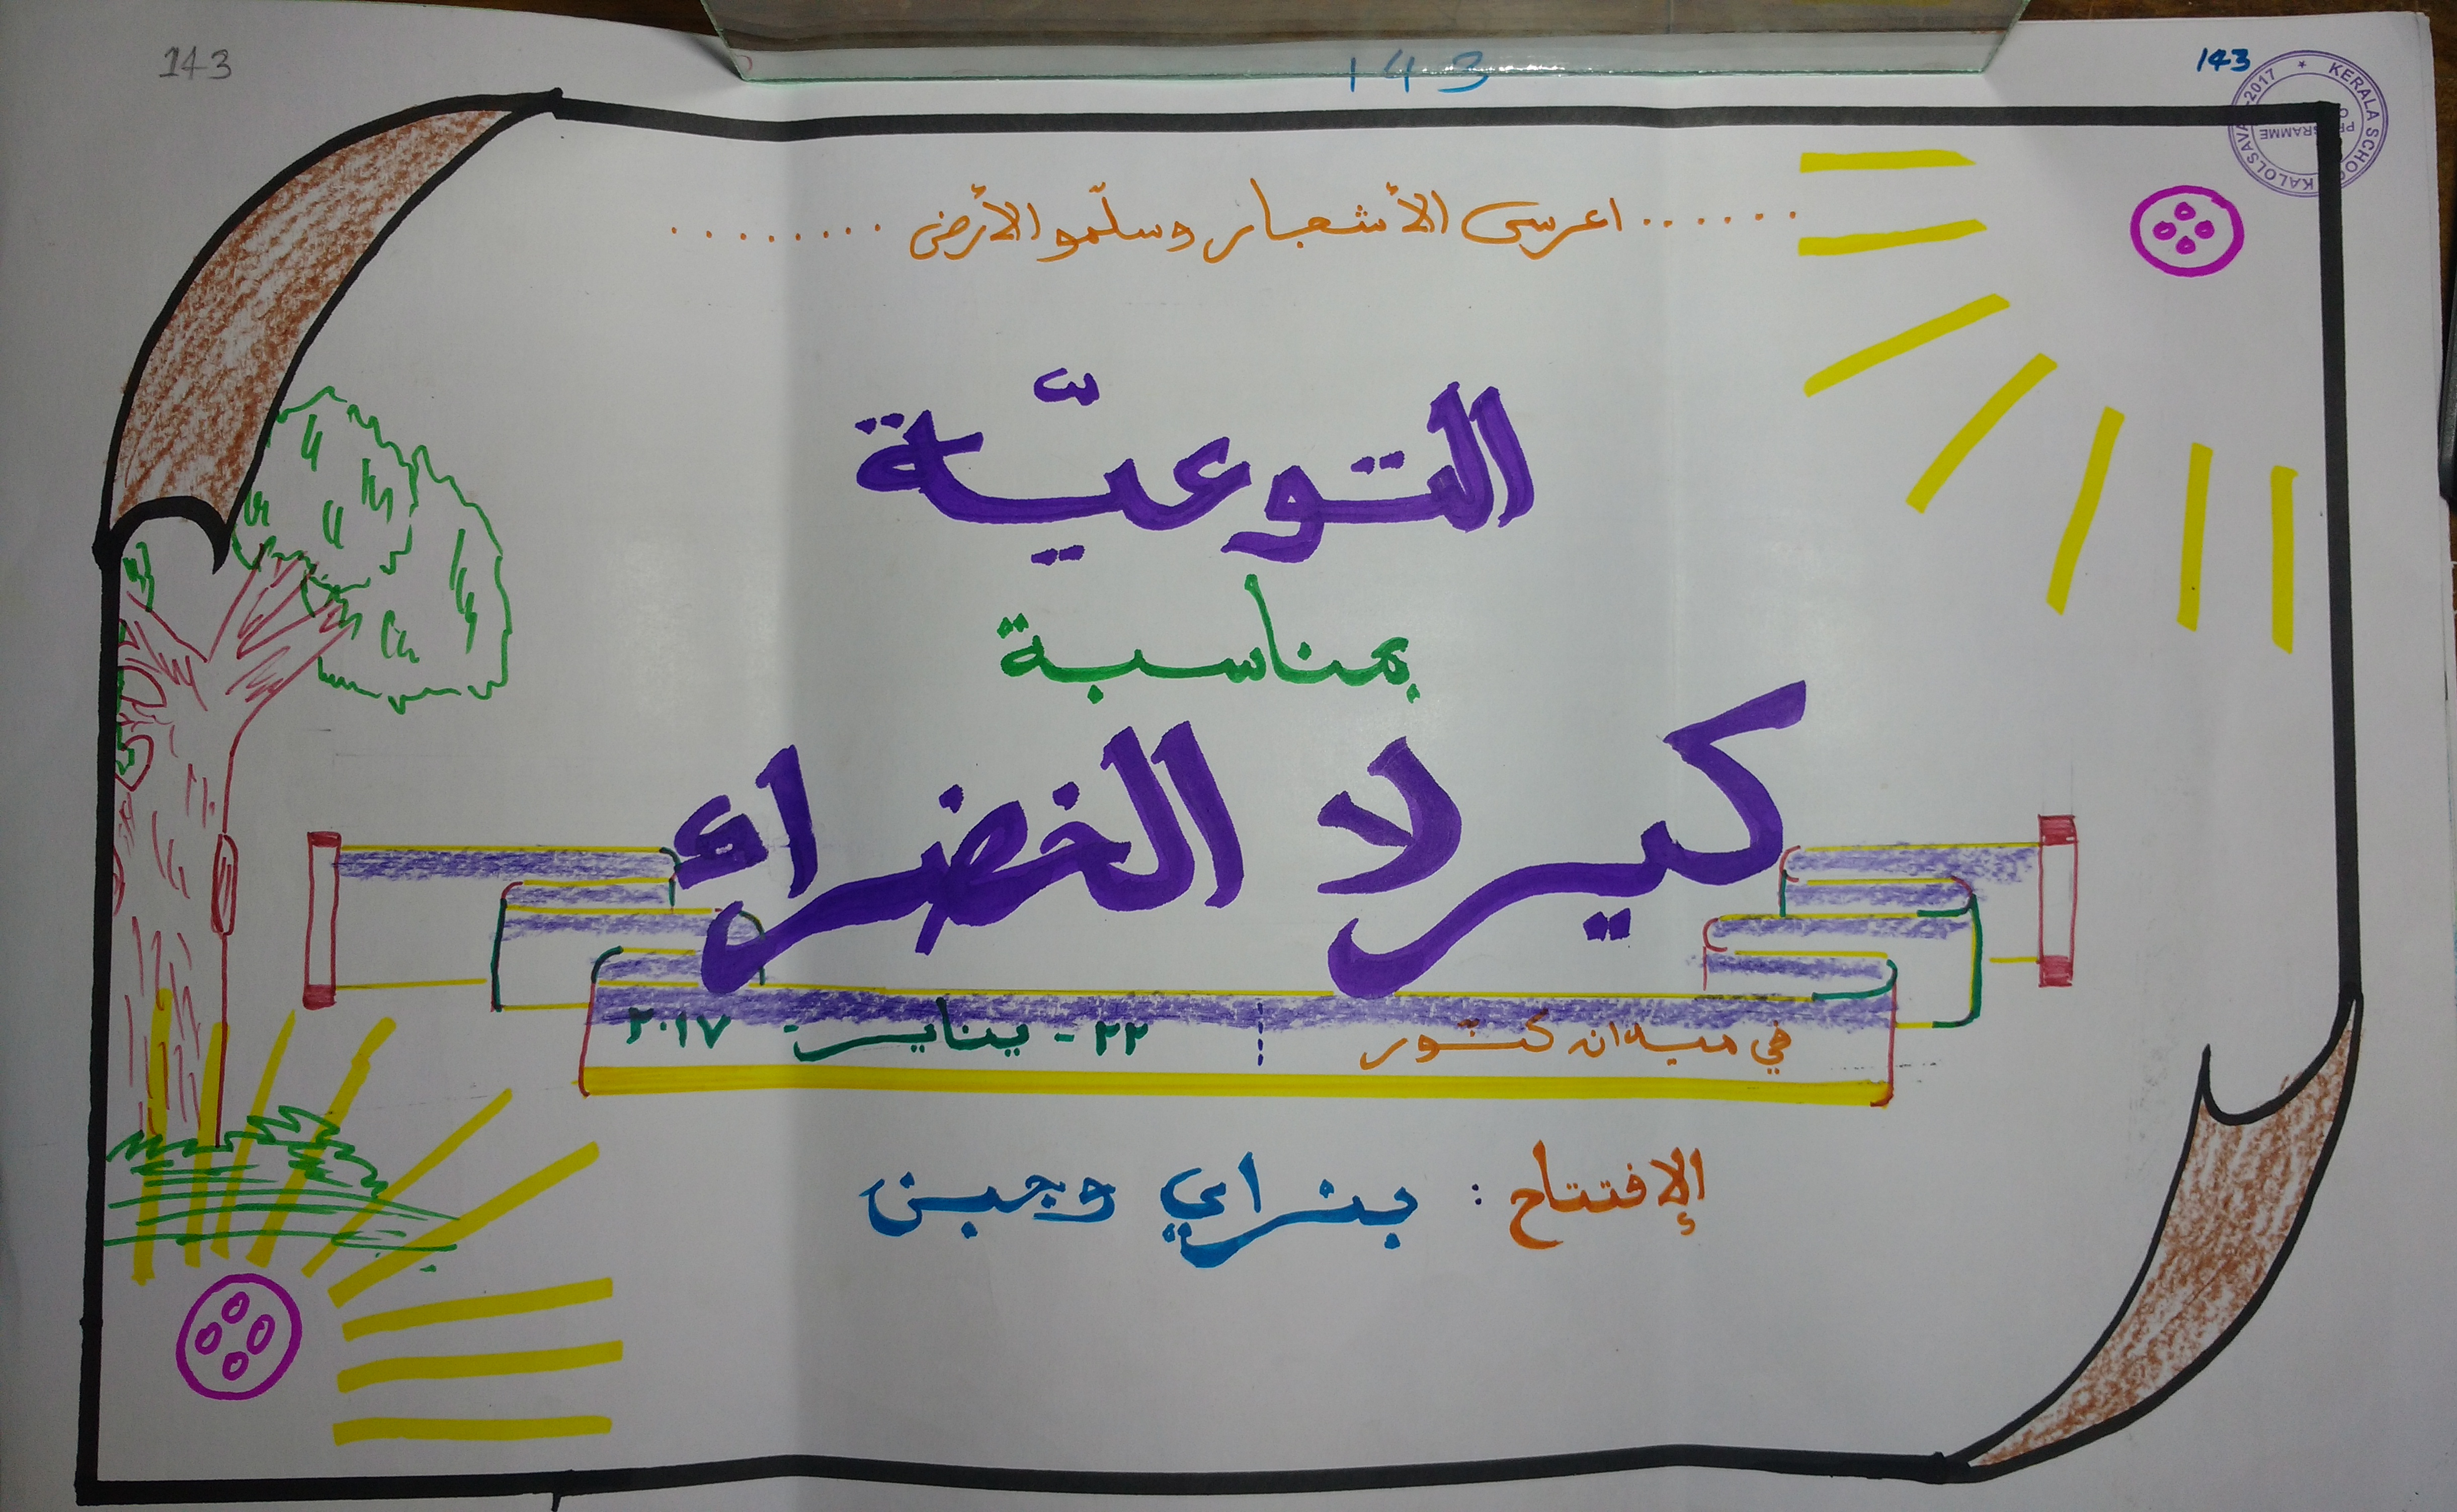 143
143
143
KERALA SCHOOL KALOLSAVAM-2017
PROGRAMME
...... اغرسى الأشجار وسلّمو الأرض ........
التوعيّة
بمناسبة
كيرلا الخضراء
في ميدان كنّور ¦ ٢٢ - يناير ٢٠١٧
الإفتتاح : بنراي وجين